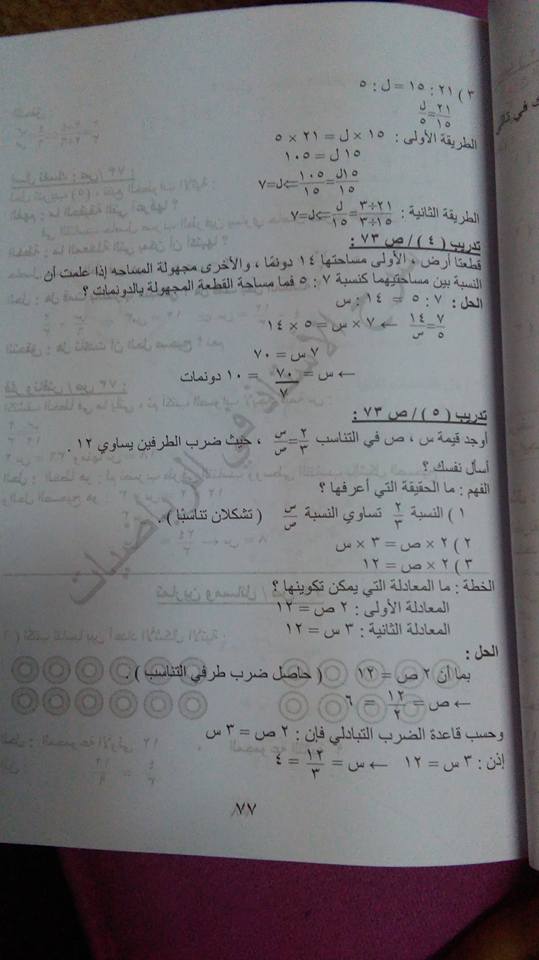 ٣ ) ٢١ : ١٥ = ل : ٥
٢١/١٥ = ل/٥
الطريقة الأولى : ١٥ × ل = ٢١ × ٥
١٥ ل = ١٠٥
١٥ل/١٥ = ١٠٥/١٥ ⇐ ل=٧
الطريقة الثانية : ٢١÷٣/١٥÷٣ = ل/١٥ ⇐ ل=٧
تدريب ( ٤ ) / ص ٧٣ :
قطعتا أرض ، الأولى مساحتها ١٤ دونمًا ، والأخرى مجهولة المساحه إذا علمت أن
النسبة بين مساحتيهما كنسبة ٧ : ٥ فما مساحة القطعة المجهولة بالدونمات ؟
الحل : ٧ : ٥ = ١٤ : س
٧/٥ = ١٤/س ← ٧ × س = ٥ × ١٤
٧ س = ٧٠
← س = ٧٠/٧ = ١٠ دونمات
تدريب ( ٥ ) / ص ٧٣ :
أوجد قيمة س ، ص في التناسب ٢/٣ = س/ص ، حيث ضرب الطرفين يساوي ١٢ .
أسأل نفسك ؟
الفهم : ما الحقيقة التي أعرفها ؟
١ ) النسبة ٢/٣ تساوي النسبة س/ص ( تشكلان تناسبًا ) .
٢ ) ٢ × ص = ٣ × س
٣ ) ٢ × ص = ١٢
الخطة : ما المعادلة التي يمكن تكوينها ؟
المعادلة الأولى : ٢ ص = ١٢
المعادلة الثانية : ٣ س = ١٢
الحل :
بما أن ٢ ص = ١٢ ( حاصل ضرب طرفي التناسب ) .
← ص = ١٢/٢ = ٦
وحسب قاعدة الضرب التبادلي فإن : ٢ ص = ٣ س
إذن : ٣ س = ١٢ ← س = ١٢/٣ = ٤
٧٧